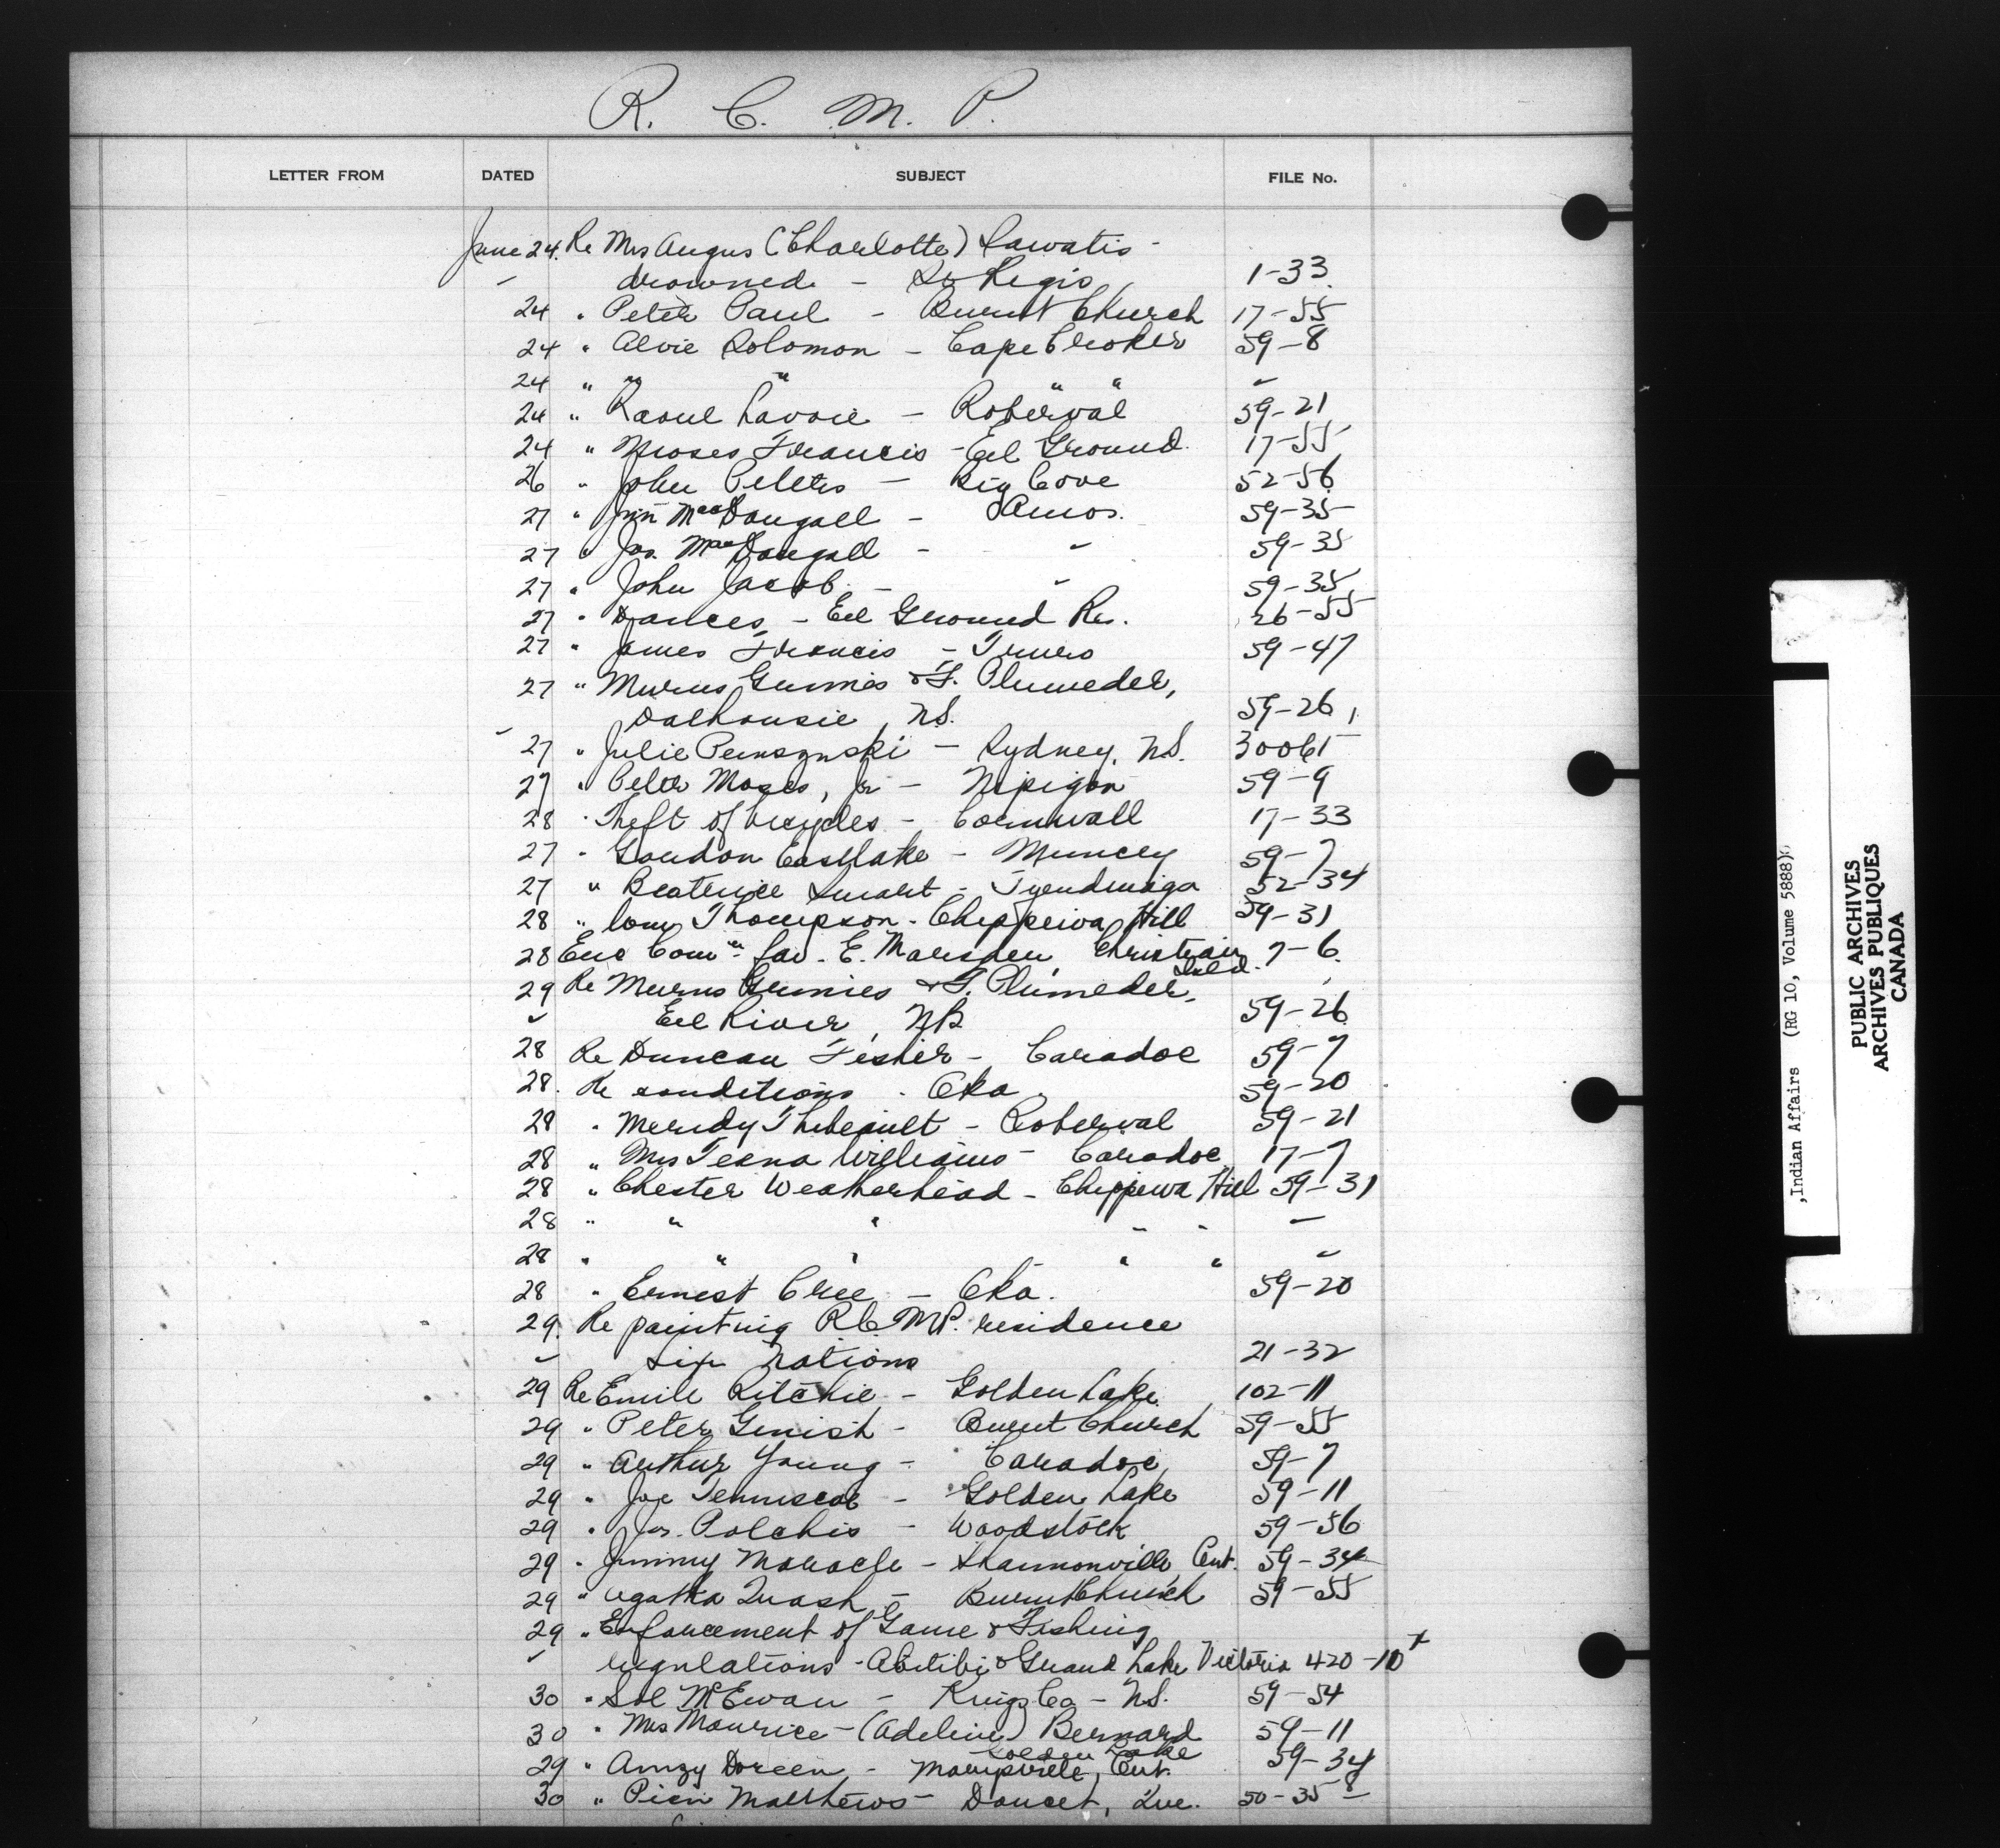 R. C. M. P.
LETTER FROM DATED SUBJECT FILE No.
June 24. Re Mrs Angus (Charlotte) Lawatis -
drowned - St Regis 1-33
24 " Peter Paul - Burnt Church 17-55
24 " Alvie Solomon - Cape Croker 59-8
24 " " " " " "
24 " Raoul Lavoie - Roberval 59-21
24 " Moses Francis - Eel Ground 17-55
26 " John Peters - Big Cove 52-56
27 " Jim MacDougall - Amos. 59-35
27 " Jos. MacDougall - " 59-35
27 " John Jacob - " 59-35
27 " Dances - Eel Ground Res. 26-55
27 " James Francis - Truro 59-47
27 " & F. Plumedel,
Dalhousie, N.S. 59-26
27 " Julie - Sydney, N.S. 30061
27 " Peter Moses, Jr - Nipigon 59-9
28 " Theft of bicycles - Cornwall 17-33
27 " Gordon Eastlake - Muncey 59-7
27 " Beatrice Smart - Tyendinaga 52-34
28 " Thompson - Chippewa Hill 59-31
28 Enc Comn. fav. E. Marsden, Christian Isld. 7-6
29 Re & F. Plumedel,
Eel River, NB 59-26
28 Re Duncan Fisher - Caradoc 59-7
28. Re conditions - Oka 59-20
28 " Meridy Thibeault - Roberval 59-21
28 " Mrs Teena Williams - Caradoc 17-7
28 " Chester Weatherhead - Chippewa Hill 59-31
28 " " " " " "
28 " " " " " "
28 " Ernest Cree - Oka. 59-20
29. Re painting R.C.M.P. residence
Six Nations 21-32
29 Re Emile Ritchie - Golden Lake 102-11
29 " Peter Genish - Burnt Church 59-55
29 " Arthur Young - Caradoc 59-7
29 " Joe Tenniscoe - Golden Lake 59-11
29 " Jos. Polchis - Woodstock 59-56
29 " Jimmy Maracle - Shannonville, Ont. 59-34
29 " Agatha Quash - Burnt Church 59-55
29 " Enforcement of Game & Fishing
regulations - Abitibi & Grand Lake Victoria 420-10 x
30 " Sol McEwan - Kings Co - N.S. 59-54
30 " Mrs Maurice - (Adeline) Bernard 59-11
Golden Lake
29 " Amzy Doreen - Marysville, Ont. 59-34
30 " Pien Matthews - Doucet, Que. 50-35 8
,Indian Affairs (RG 10, Volume 5888)
PUBLIC ARCHIVES
ARCHIVES PUBLIQUES
CANADA